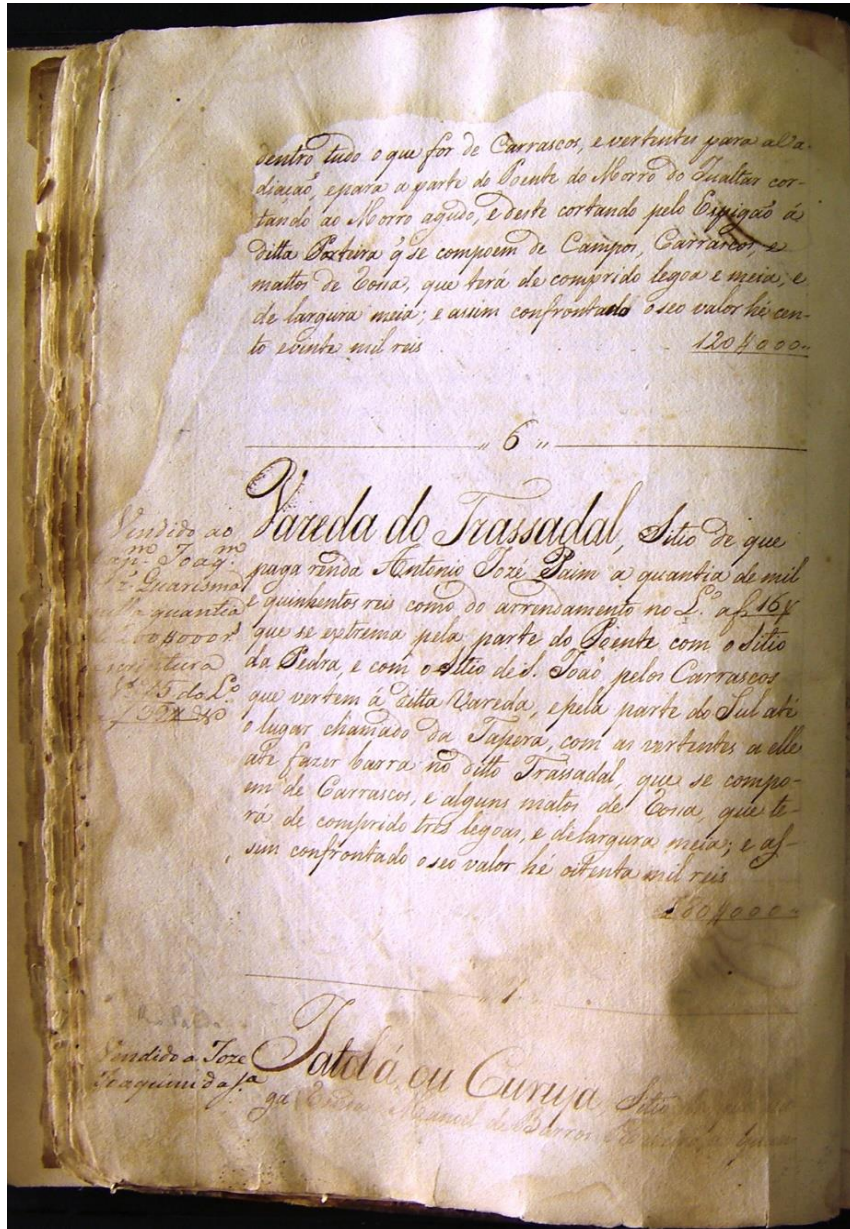 dentro tudo o que for de Carrascos, e vertentes para a Va-
diação, e para a parte do Poente do Morro do Gualtar cor-
tando ao Morro agudo, e deste cortando pelo Espigão á
ditta Porteira q̃ se compoem de Campos, Carrascos, e
mattos de Tona, que terá de comprido legoa e meia, e
de largura meia; e assim confrontado o seo valor hé cen-
to e vinte mil reis 120$000
6
Vareda do Trassadal, Sitio de que
paga renda Antonio Jozé Paim a quantia de mil
e quinhentos reis como do arrendamento no L.º a f 16
que se extrema pela parte do Poente com o Sitio
da Pedra, e com o Sitio de S. João, pelos Carrascos
que vertem á ditta Vareda, e pela parte do Sul até
o lugar chamado da Tapera, com as vertentes a elle
até fazer barra no ditto Trassadal, que se compo-
em de Carrascos, e alguns matos de Tona, que te-
rá de comprido tres legoas, e de largura meia; e as-
sim confrontado o seo valor hé oitenta mil reis
80$000
Vendido ao
Cap.m Joaq.m
Guarisma
quantia
200$000 r.s
escritura
do L.º
Jatobá, ou Curuja, Sitio
ga Manoel de Barros
Vendido a Joze
Joaquim da S.a